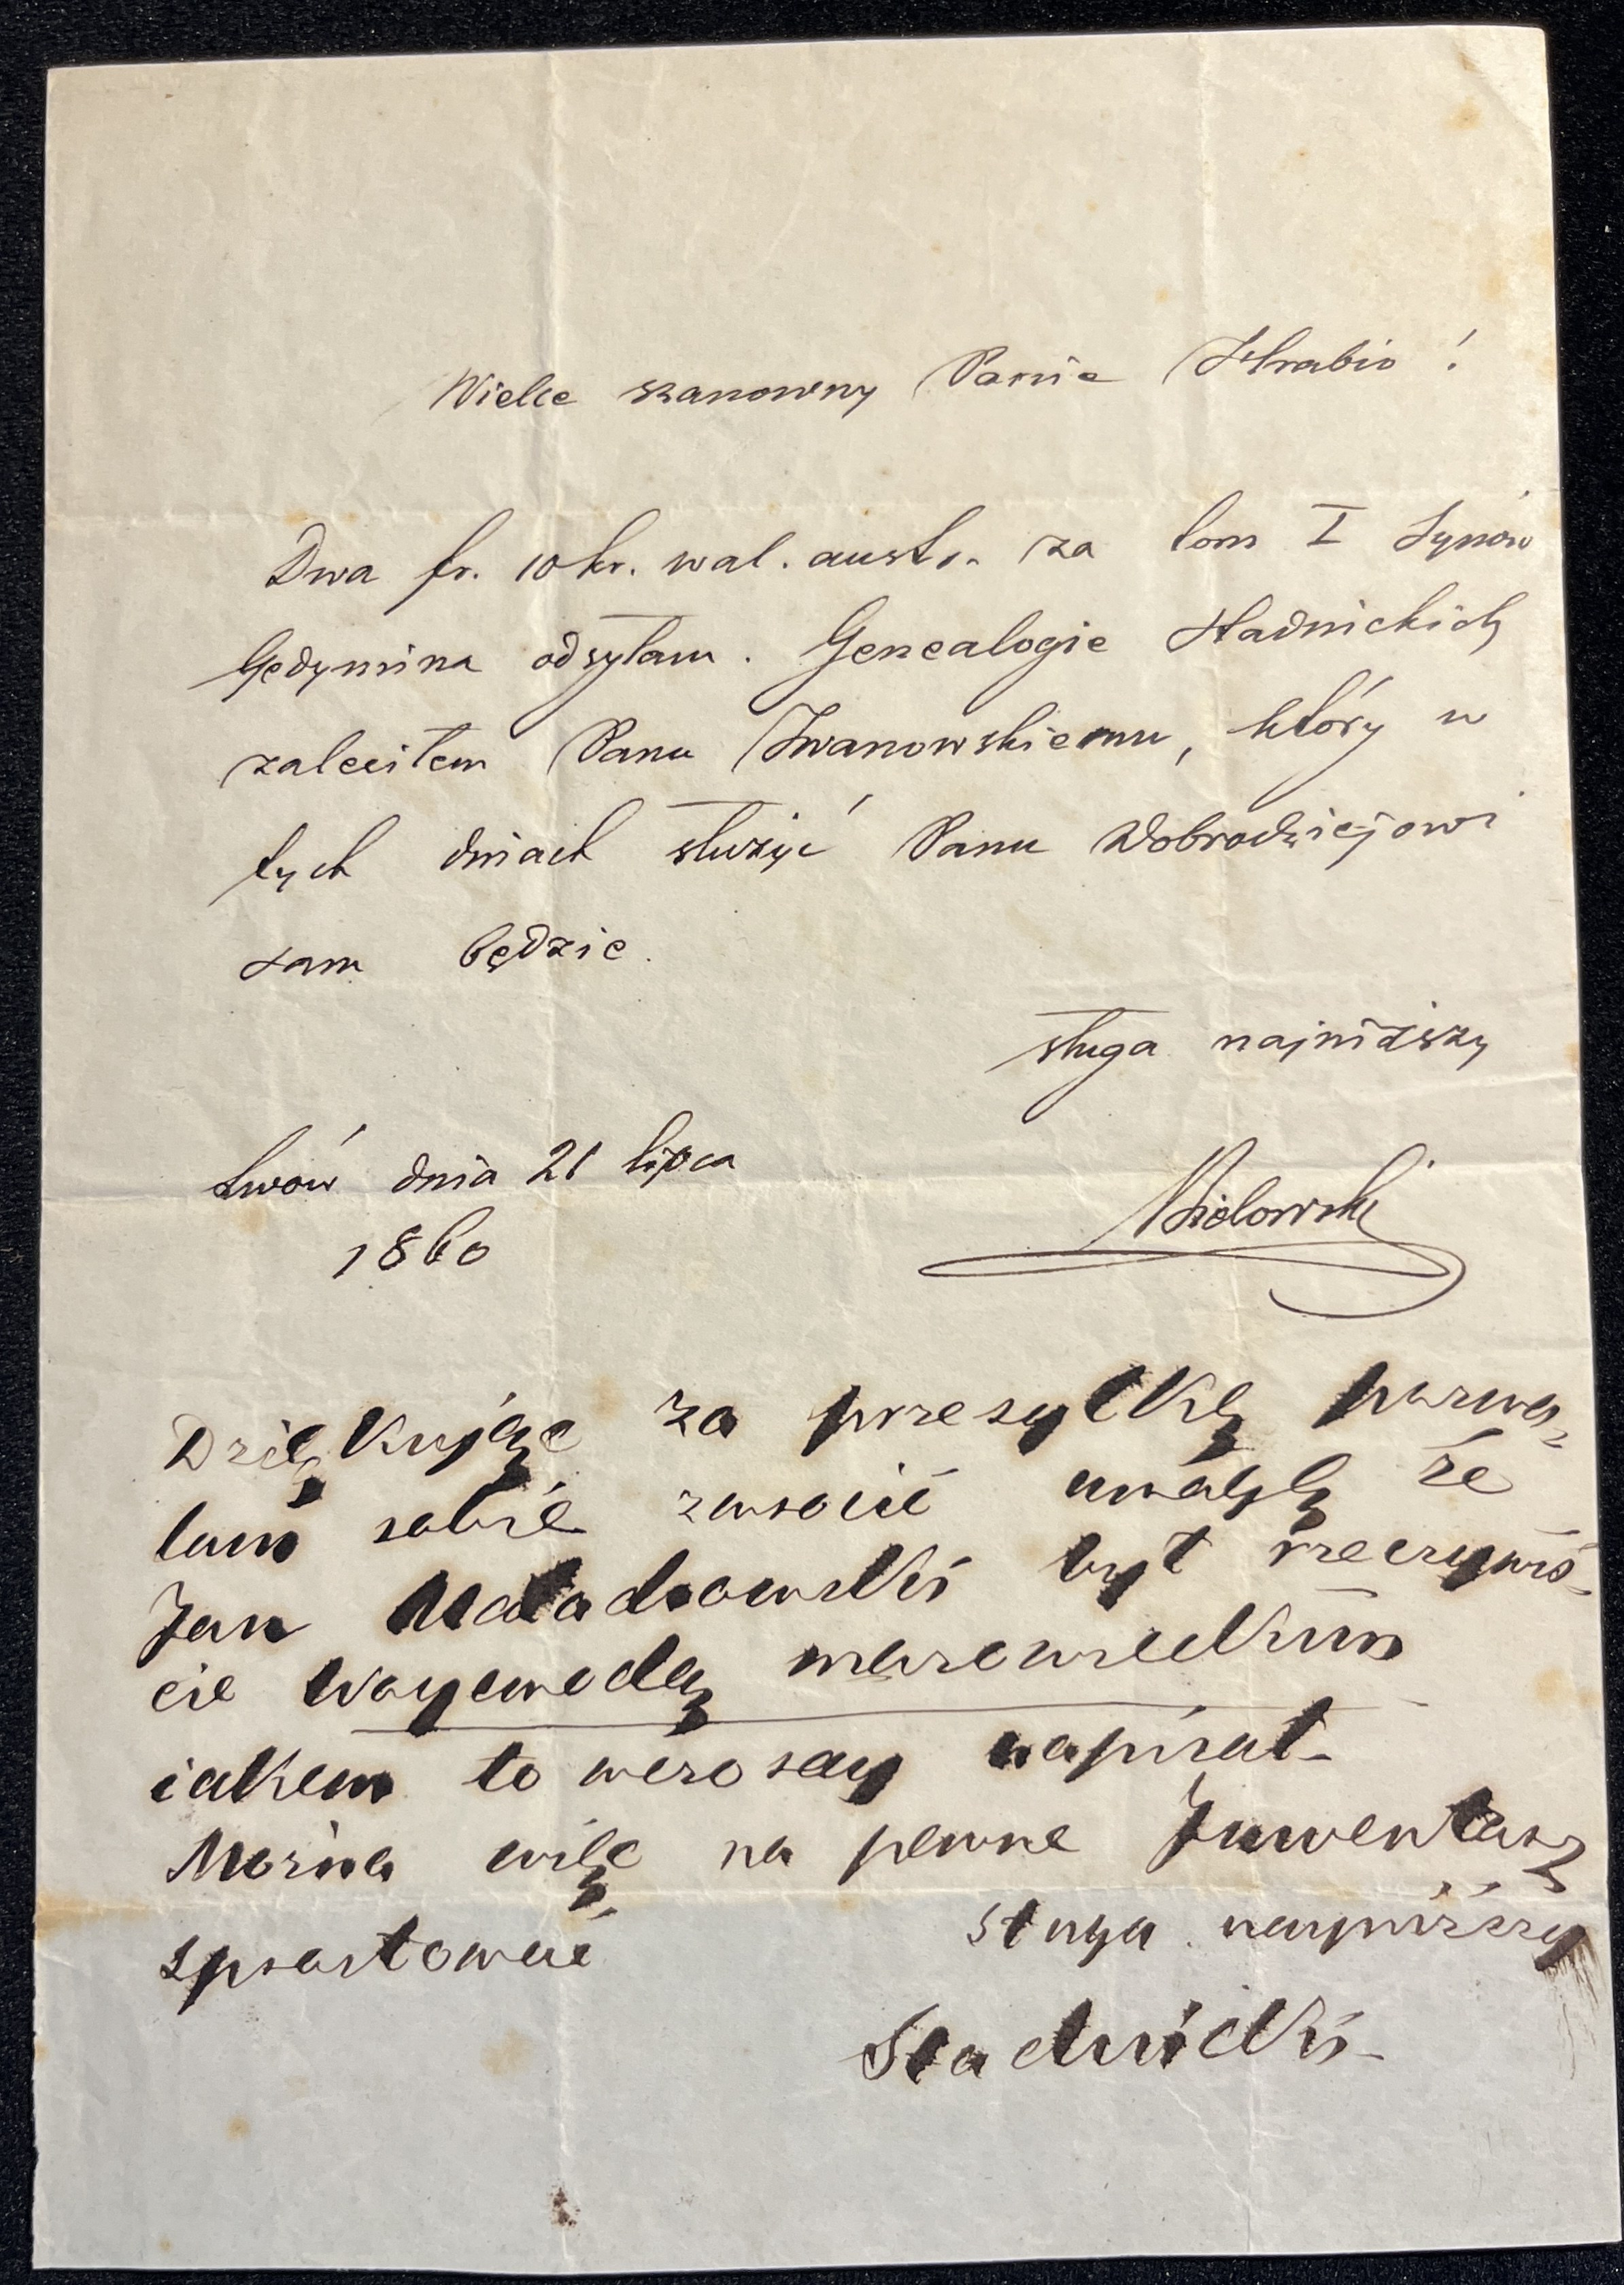 Wielce szanowny Panie Hrabio!
Dwa fr. 10 kr. wal. austr. za tom I Synów
Gedymina odsyłam. Genealogie Stadnickich
zaleciłem Panu Iwanowskiemu, który w
tych dniach służyć Panu Dobrodziejowi
sam będzie.
sługa najniższy
Lwów dnia 21 lipca
1860
Bielowski
Dziękując za przesyłkę pozwa-
lam sobie zwrócić uwagę że
Jan był rzeczywiś-
cie Woyewodą mazowieckim
iakem to wczoray napisał-
Można więc na pewne Inwentarz
sprostować
Sługa nayniższy
Stadnicki-